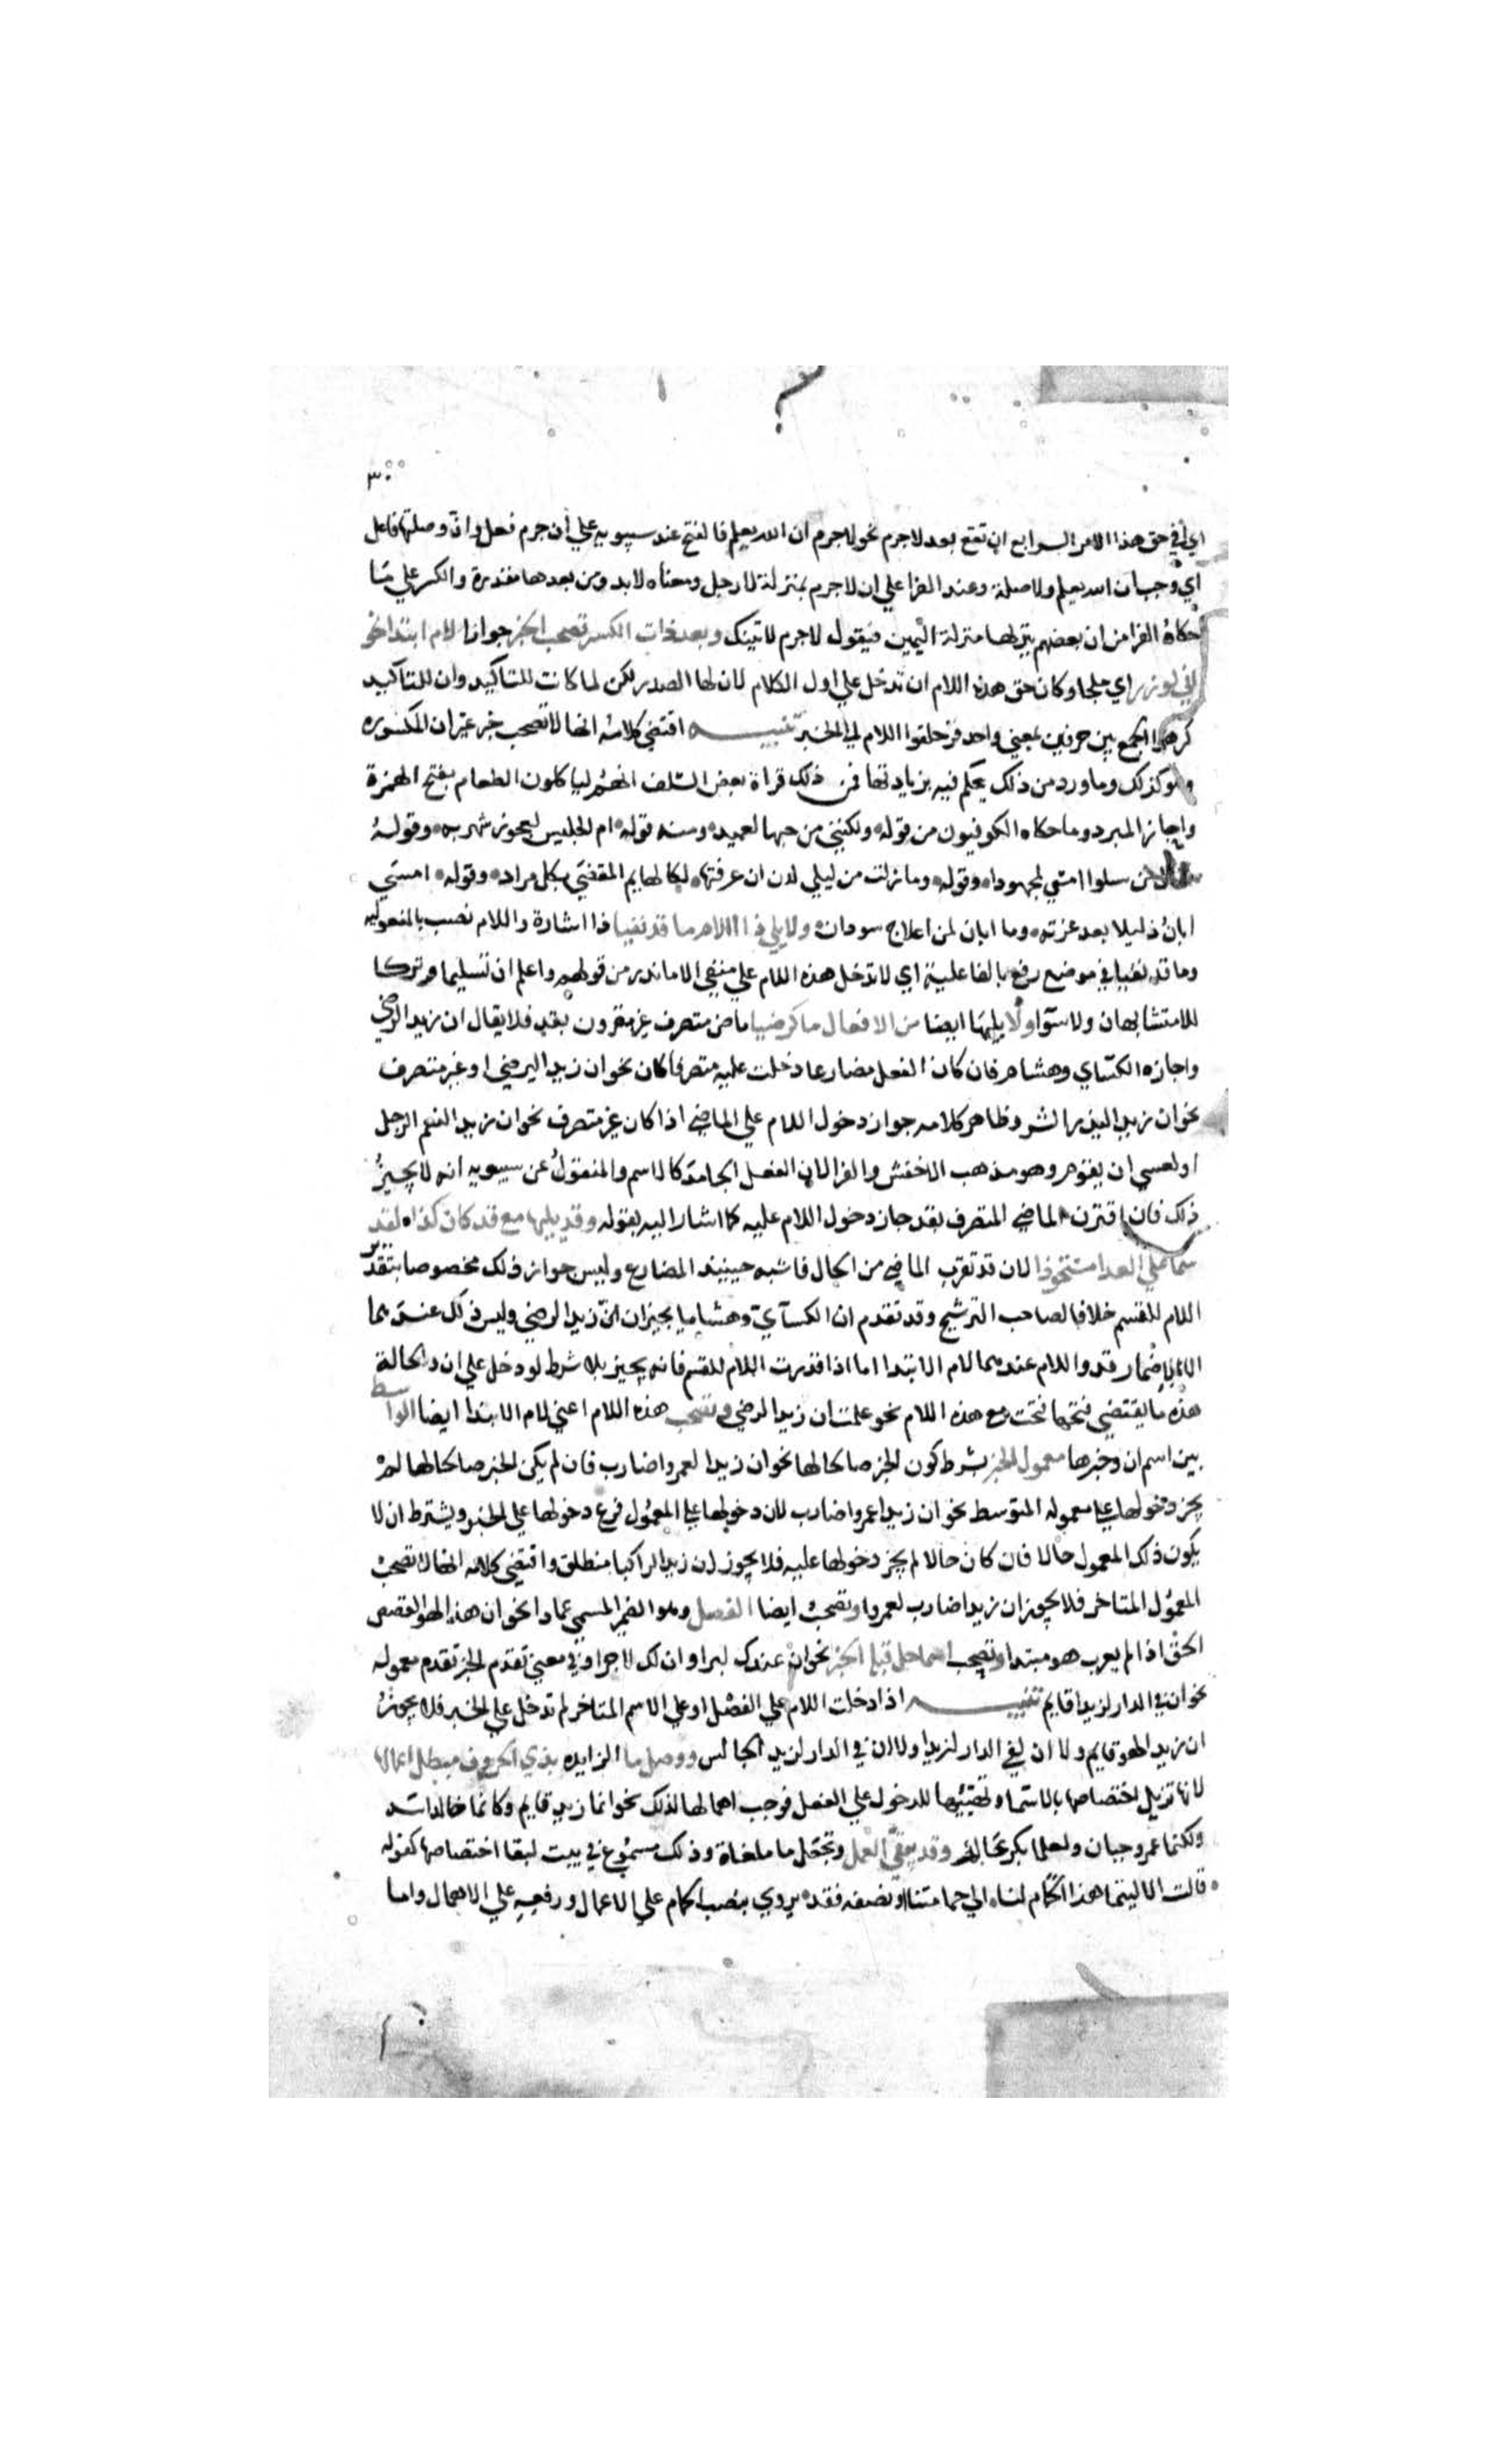 ٣٠
اي في حق هذا الامر الرابع ان تقع بعد لاجرم نحو لاجرم ان الله يعلم فالفتح عند سيبويه علي أن جرم فعل وانّ وصلتها فاعل
اي وجب ان الله يعلم ولا صلة وعند الفرا علي ان لاجرم بمنزلة لا رجل ومعناه لابد ومن بعدها مقدرة والكسر علي ما
حكاه الفرا من ان بعضهم ينزلها منزلة اليمين فيقول لاجرم لاتينك وبعد ذات الكسر تصحب الخبر جوازا لام ابتدا نحو
اني لوزر اي ملجا وكان حق هذه اللام ان تدخل علي اول الكلام لان لها الصدر لكن لما كانت للتاكيد وان للتاكيد
كرهوا الجمع بين حرفين بمعني واحد فزحلقوا اللام الي الخبر تنبيه اقتضي كلامه انها لا تصحب خبر غير ان المكسوره
وهو كذلك وما ورد من ذلك يحكم فيه بزيادتها فمن ذلك قراة بعض السلف الا انهم لياكلون الطعام بفتح الهمزة
واجازه المبرد وما حكاه الكوفيون من قوله ولكنني من حبها لعميد ومنه قوله ام الحليس لعجوز شهربه وقوله
من سلوا امسي لمجهودا وقوله وما زلت من ليلي لدن ان عرفتها لكالهايم المقصي بكل مراد وقوله امسي
ابان ذليلا بعد عزته وما ابان لمن اعلاج سودان ولا يلي ذا اللام ما قد نفيا ذا اشارة واللام نصب بالمفعوليه
وما قد نفيا في موضع رفع بالفاعلية اي لا تدخل هذه اللام علي منفي الا ما ندر من قولهم واعلم ان تسليما وتركا
للا متشابهان ولا سوا ولا يليها ايضا من الافعال ما كرضيا ماض متصرف غير مقرون بقد فلا يقال ان زيدا لرضي
واجازه الكساي وهشام فان كان الفعل مضارعا دخلت عليه متصرفا كان نحو ان زيدا ليرضي او غير متصرف
نحو ان زيدا ليذر الشر وظاهر كلامه جواز دخول اللام علي الماضي اذا كان غير متصرف نحو ان زيدا لنعم الرجل
او لعسي ان يقوم وهو مذهب الاخفش والفرا لان الفعل الجامد كالاسم والمنقول عن سيبويه انه لا يجيز
ذلك فان اقترن الماضي المتصرف بقد جاز دخول اللام عليه كما اشار اليه بقوله وقد يليها مع قد كان ذا لقد
سما علي العدا مستحوذا لان قد تقرب الماضي من الحال فاشبه حينيذ المضارع وليس جواز ذلك مخصوصا بتقدير
اللام للقسم خلافا لصاحب الترشيح وقد تقدم ان الكسآي وهشاما يجيزان انّ زيدا لرضي وليس ذلك عندهما
الا باضمار قد واللام عندهما لام الابتدا اما اذا قدرت اللام للقسم فانه يجيز بلا شرط لو دخل علي ان والحالة
هذه ما يقتضي فتحها فتحت مع هذه اللام نحو علمت ان زيدا لرضي وتصحب هذه اللام اعني لام الابتدا ايضا الواسط
بين اسم ان وخبرها معمول الخبر بشرط كون الخبر صالحا لها نحو ان زيدا لعمرا ضارب فان لم يكن الخبر صالحا لها لم
يجز دخولها علي معموله المتوسط نحو ان زيدا عمرا ضارب لان دخولها علي المعمول فرع دخولها علي الخبر ويشترط ان لا
يكون ذلك المعمول حالا فان كان حالا لم يجز دخولها عليه فلا يجوز ان زيدا لراكبا منطلق واقتضي كلامه انها لا تصحب
المعمول المتاخر فلا يجوز ان زيدا ضارب لعمرا وتصحب ايضا الفصل وهو الضمير المسمي عمادا نحو ان هذا لهو القصص
الحق اذا لم يعرب هو مبتدا وتصحب اسما حل قبله الخبر نحو ان عندك لبرا وان لك لاجرا وفي معني تقدم الخبر تقدم معموله
نحو ان في الدار لزيدا قايم تنبيه اذا دخلت اللام علي الفصل او علي الاسم المتاخر لم تدخل علي الخبر فلا يجوز
ان زيدا لهو لقايم ولا ان لفي الدار لزيدا ولا ان في الدار لزيدا لجالس ووصل ما الزايده بذي الحروف مبطل اعمالها
لانها تزيل اختصاصها بالاسما وتهيئها للدخول علي الفعل فوجب اهمالها لذلك نحو انما زيد قايم وكانما خالد اسد
ولكنما عمرو جبان ولعلما بكر عالم وقد يبقي العمل وتجعل ما ملغاة وذلك مسموع في ليت لبقا اختصاصها كقوله
قالت الا ليتما هذا الحمام لنا الي حمامتنا او نصفه فقد يروي بنصب الحمام علي الاعمال ورفعه علي الاهمال واما